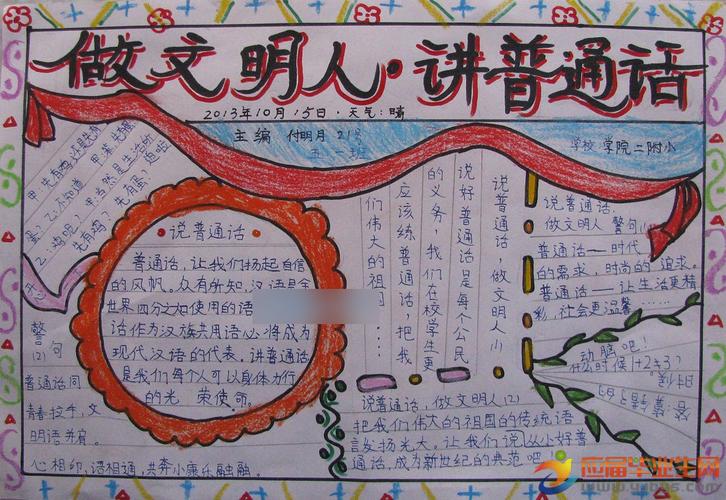 做文明人·讲普通话
2013年10月15日·天气:晴
主编 付明月 21号
学校 学院二附小
说普通话
普通话,让我们扬起自信
的风帆。众所知,汉语是全
世界四分之 使用的语
话作为汉族共用语必将成为
现代汉语的代表。讲普通话
是我们每个人可以身体力行
的光 荣使命。
说普通话,做文明人(1)
说好普通话是每个公民
的义务,我们在校学生更
应该练普通话,把我
们伟大的祖国……
说普通话,
做文明人 警句(1)
普通话——时代
的需求,时尚的追求。
普通话——让生活更精
彩,社会更温馨……
动脑吧!
什么时候1+2≠3?
警句
(2)
普通话同
青春拉手,文
明语并肩。
心相印,语相通,共奔小康乐融融。
说普通话,做文明人(2)
把我们伟大的祖国的传统语
言发扬光大,让我们说
通话,成为新世纪的典范吧!
应届毕业生网